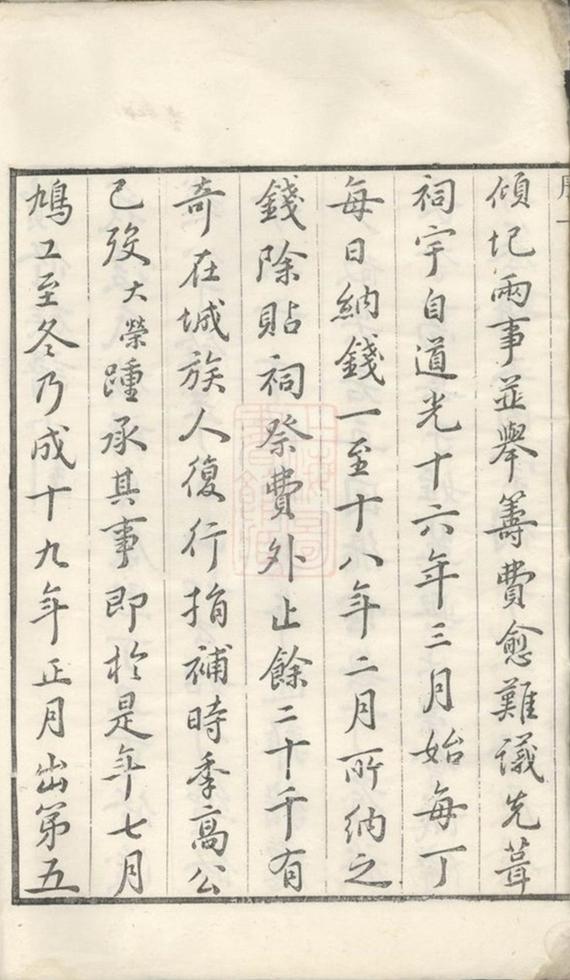 傾圮兩事並舉籌費愈難議先葺
祠宇自道光十六年三月始每丁
每日納錢一至十八年二月所納之
錢除貼祠祭費外止餘二十千有
奇在城族人復行捐補時季高公
已歿大榮踵承其事即於是年七月
鳩工至冬乃成十九年正月出第五